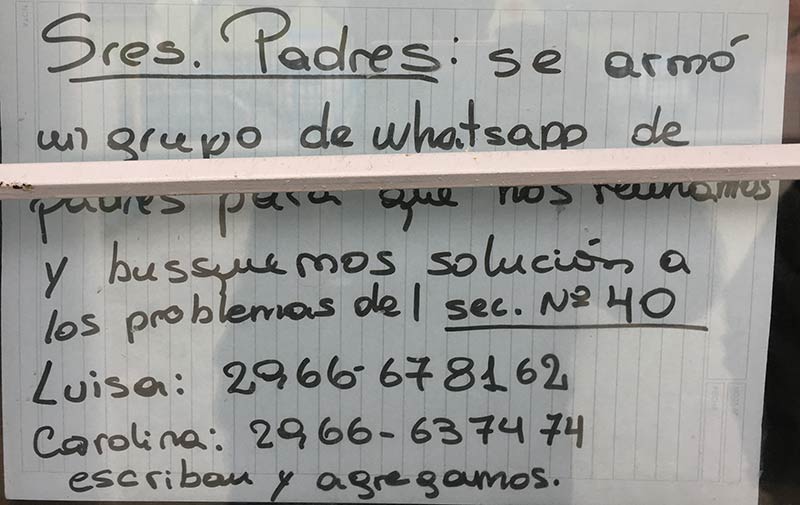 Sres. Padres: se armó
un grupo de whatsapp de
padres para que nos reunamos
y bussquemos solución a
los problemas del sec. Nº 40
Luisa: 2966-678162
Carolina: 2966-637474
escriban y agregamos.